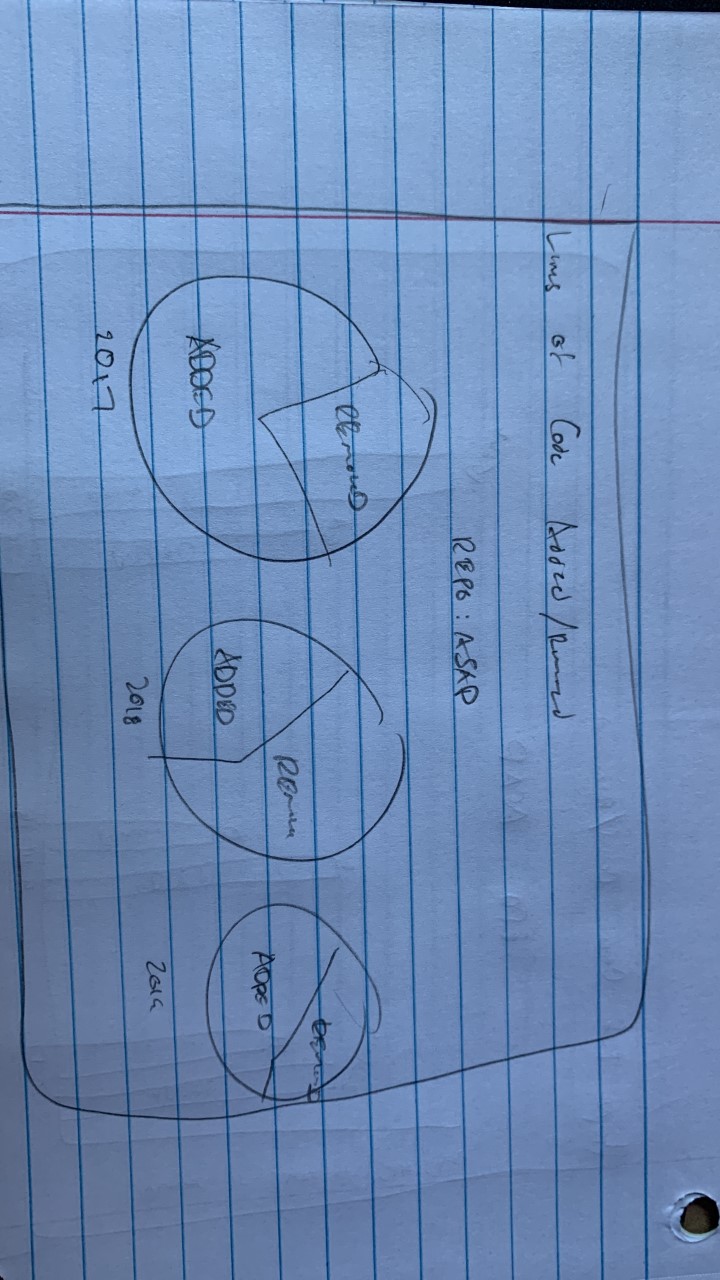 Lines of Code Added/Removed
REPO: ASAP
REMOVED
ADDED
2017
ADDED
2018
ADDED
2019